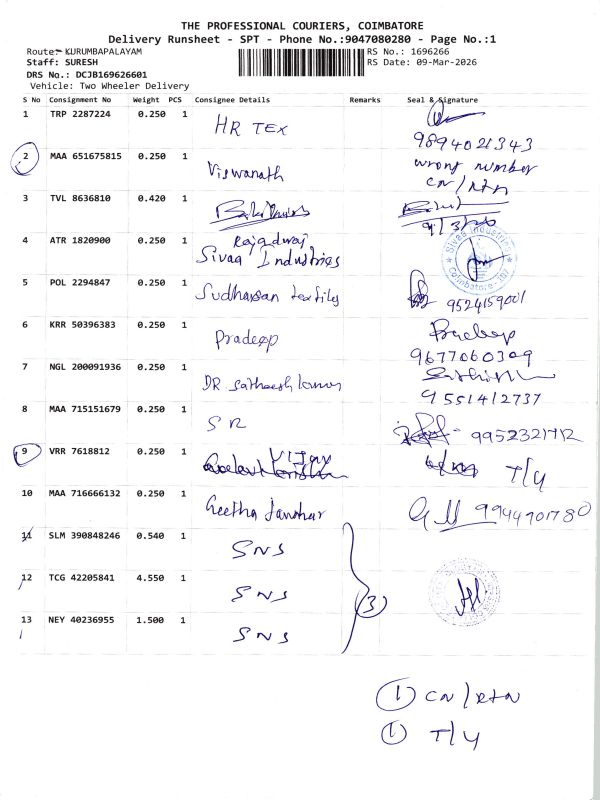 THE PROFESSIONAL COURIERS, COIMBATORE
Delivery Runsheet - SPT - Phone No.:9047080280 - Page No.:1
Route:- KURUMBAPALAYAM
RS No.: 1696266
Staff: SURESH
RS Date: 09-Mar-2026
DRS No.: DCJB169626601
Vehicle: Two Wheeler Delivery
S No Consignment No Weight PCS Consignee Details Remarks Seal & Signature
1 TRP 2287224 0.250 1 HR TEX
9894021343
2 MAA 651675815 0.250 1 Viswanath wrong number
CN/RTN
3 TVL 8636810 0.420 1
9/3/26
4 ATR 1820900 0.250 1 Rajadwaj
Sivaa Industries
Sivaa Industries
Coimbatore
5 POL 2294847 0.250 1 Sudharsan textiles 9524159001
6 KRR 50396383 0.250 1 Pradeep Pradeep
9677060309
7 NGL 200091936 0.250 1 DR Satheeshkumar
9551412737
8 MAA 715151679 0.250 1 SR 9952321712
9 VRR 7618812 0.250 1 Vijay T/Y
10 MAA 716666132 0.250 1 Geetha 9944901780
11 SLM 390848246 0.540 1 SNS
12 TCG 42205841 4.550 1 SNS (3)
13 NEY 40236955 1.500 1 SNS
1 CN/RTN
1 T/Y